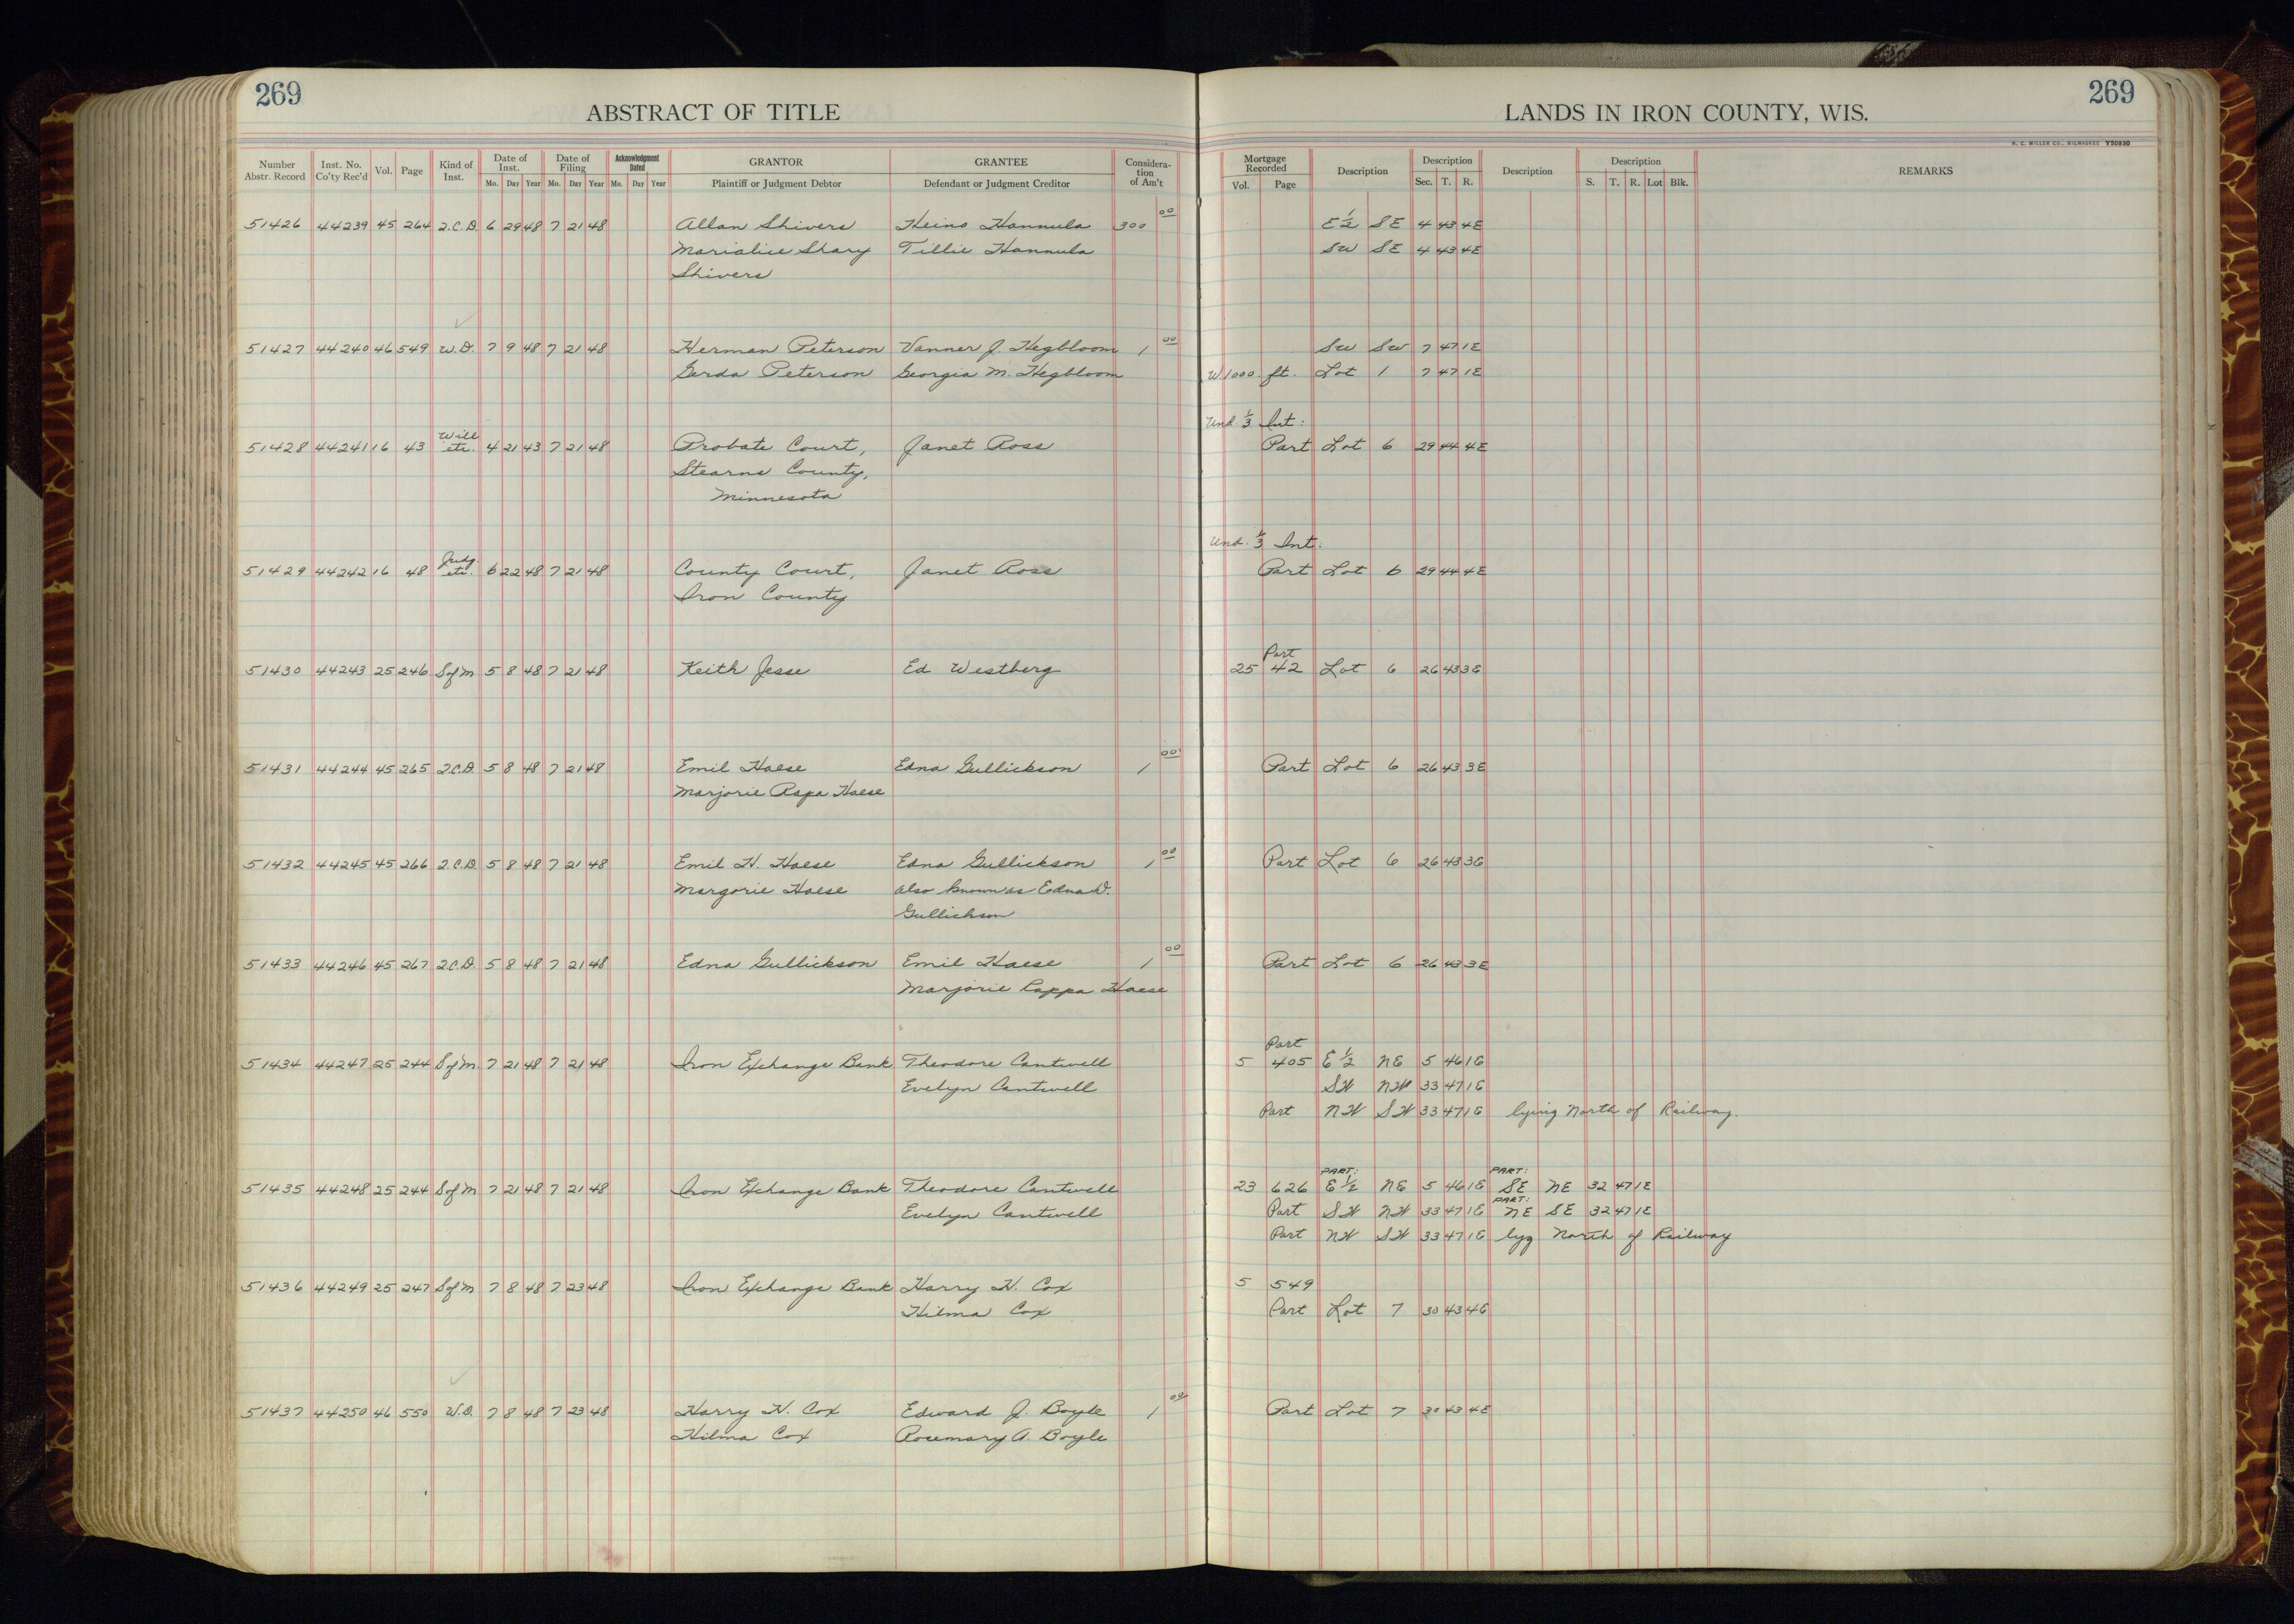 269
ABSTRACT OF TITLE
LANDS IN IRON COUNTY, WIS.
269
H. C. MILLER CO., MILWAUKEE Y50930
Number Abstr. Record Inst. No. Co'ty Rec'd Vol. Page Kind of Inst. Date of Inst. Date of Filing Acknowledgment Dated GRANTOR GRANTEE Considera-tion of Am't Mortgage Recorded Description Description Description Description REMARKS
Mo. Day Year Mo. Day Year Mo. Day Year Plaintiff or Judgment Debtor Defendant or Judgment Creditor Vol. Page Sec. T. R. S. T. R. Lot Blk.
51426 44239 45 264 2.C.D. 6 29 48 7 21 48 Allan Shivers Heino Hannula 300 00 E 1/2 SE 4 43 4E
Marialice Shary Tillie Hannula SW SE 4 43 4E
Shivers
51427 44240 46 549 W.D. 7 9 48 7 21 48 Herman Peterson Vanner J. Hegbloom 1 00 SW SW 7 47 1E
Gerda Peterson Georgia M. Hegbloom W. 1000 ft. Lot 1 7 47 1E
Und. 1/3 Int:
51428 44241 16 43 Will etc. 4 21 43 7 21 48 Probate Court, Janet Ross Part Lot 6 29 44 4E
Stearns County,
Minnesota
Und. 1/3 Int.
51429 44242 16 48 Judg. etc. 6 22 48 7 21 48 County Court, Janet Ross Part Lot 6 29 44 4E
Iron County
Part
51430 44243 25 246 S of M 5 8 48 7 21 48 Keith Jesse Ed Westberg 25 42 Lot 6 26 43 3E
51431 44244 45 265 2.C.D. 5 8 48 7 21 48 Emil Haese Edna Gullickson 1 00 Part Lot 6 26 43 3E
Marjorie Rapa Haese
51432 44245 45 266 2.C.D. 5 8 48 7 21 48 Emil H. Haese Edna Gullickson 1 00 Part Lot 6 26 43 3E
Margorie Haese also known as Edna D.
Gullickson
51433 44246 45 267 2.C.D. 5 8 48 7 21 48 Edna Gullickson Emil Haese 1 00 Part Lot 6 26 43 3E
Marjorie Rappa Haese
Part
51434 44247 25 244 S of M. 7 21 48 7 21 48 Iron Exchange Bank Theodore Cantwell 5 405 E 1/2 NE 5 46 1E
Evelyn Cantwell SW NW 33 47 1E
Part NW SW 33 47 1E lying North of Railway.
PART: PART:
51435 44248 25 244 S of M 7 21 48 7 21 48 Iron Exchange Bank Theodore Cantwell 23 626 E 1/2 NE 5 46 1E SE NE 32 47 1E
PART:
Evelyn Cantwell Part SW NW 33 47 1E NE SE 32 47 1E
Part NW SW 33 47 1E lyg North of Railway
51436 44249 25 247 S of M 7 8 48 7 23 48 Iron Exchange Bank Harry H. Cox 5 549
Hilma Cox Part Lot 7 30 43 4E
51437 44250 46 550 W.D. 7 8 48 7 23 48 Harry H. Cox Edward J. Boyle 1 00 Part Lot 7 30 43 4E
Hilma Cox Rosemary A. Boyle